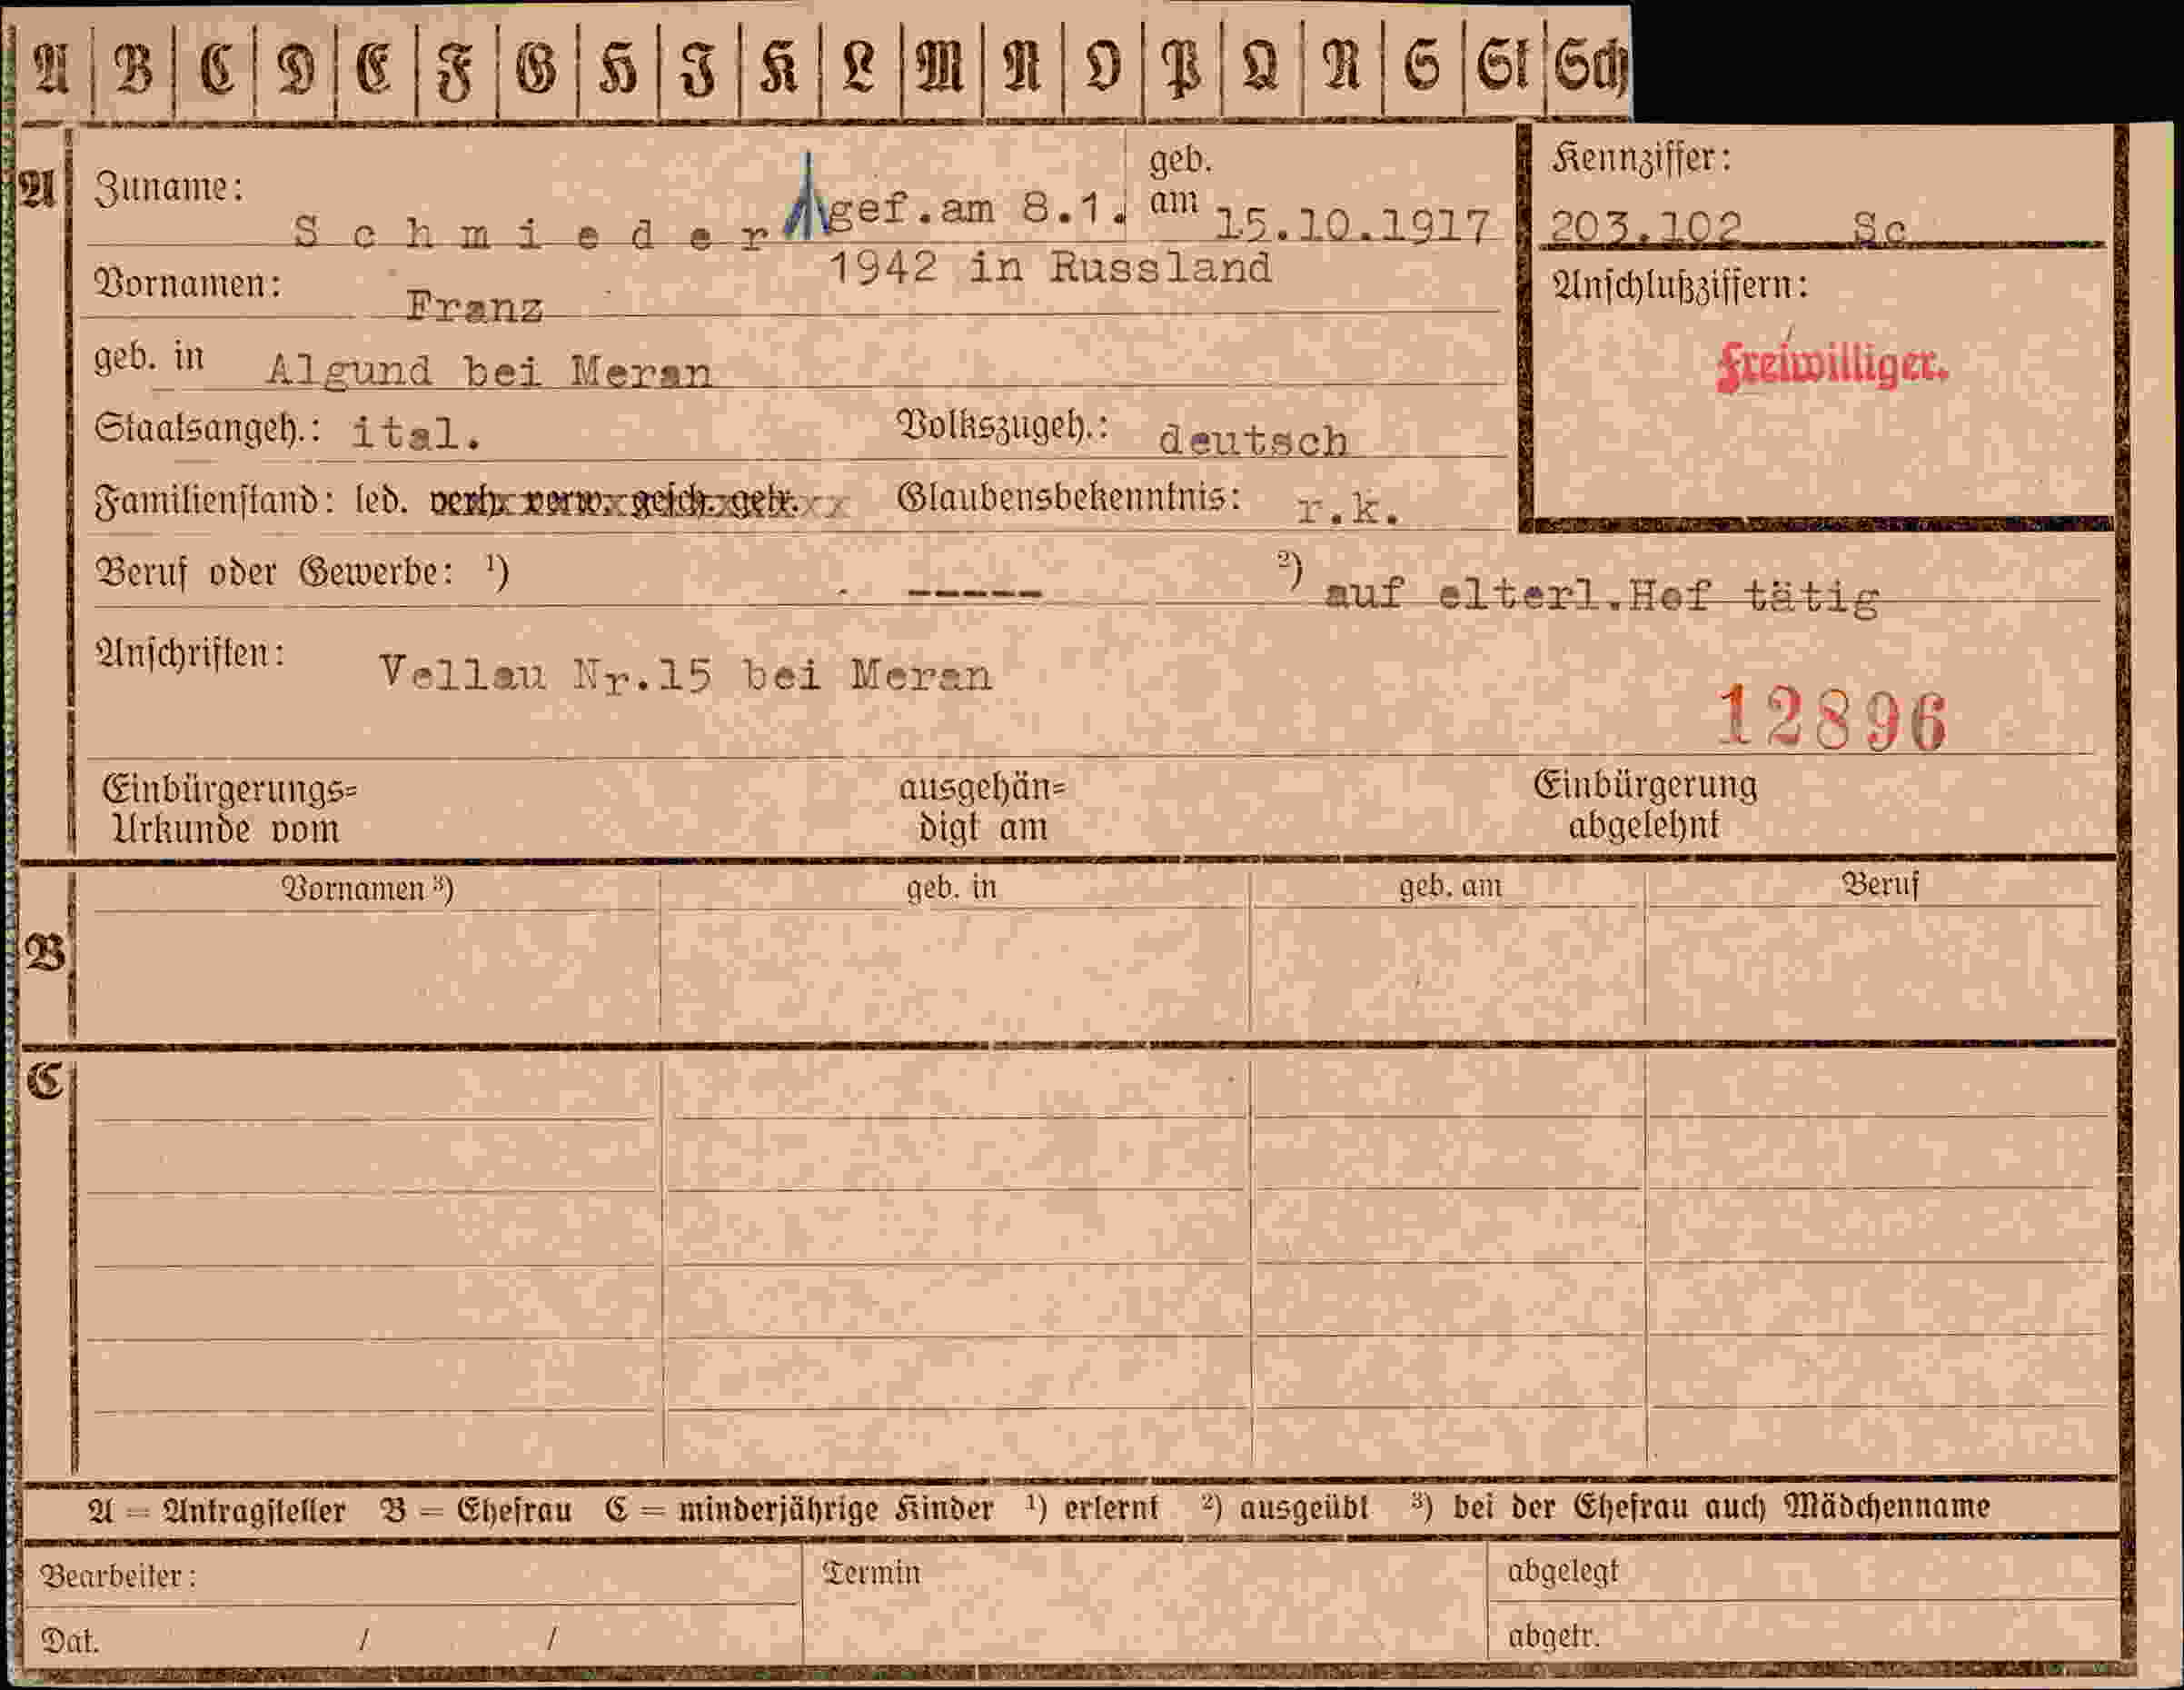 A B C D E F G H I K L M N O P Q R S St Sch
A Zuname: Schmieder gef.am 8.1. geb. am 15.10.1917
1942 in Russland
Kennziffer:
203.102 Sc
Vornamen: Franz
Anschlußziffern:
Freiwilliger.
geb. in Algund bei Meran
Staatsangeh.: ital. Volkszugeh.: deutsch
Familienstand: led. verh. verw. gesch. getr. Glaubensbekenntnis: r.k.
Beruf oder Gewerbe: ¹) ----- ²) auf elterl.Hof tätig
Anschriften: Vellau Nr.15 bei Meran
12896
Einbürgerungs= Urkunde vom
ausgehän= digt am
Einbürgerung abgelehnt
B Vornamen ³) geb. in geb. am Beruf
C
A = Antragsteller B = Ehefrau C = minderjährige Kinder ¹) erlernt ²) ausgeübt ³) bei der Ehefrau auch Mädchenname
Bearbeiter: Termin abgelegt
Dat. / / abgetr.